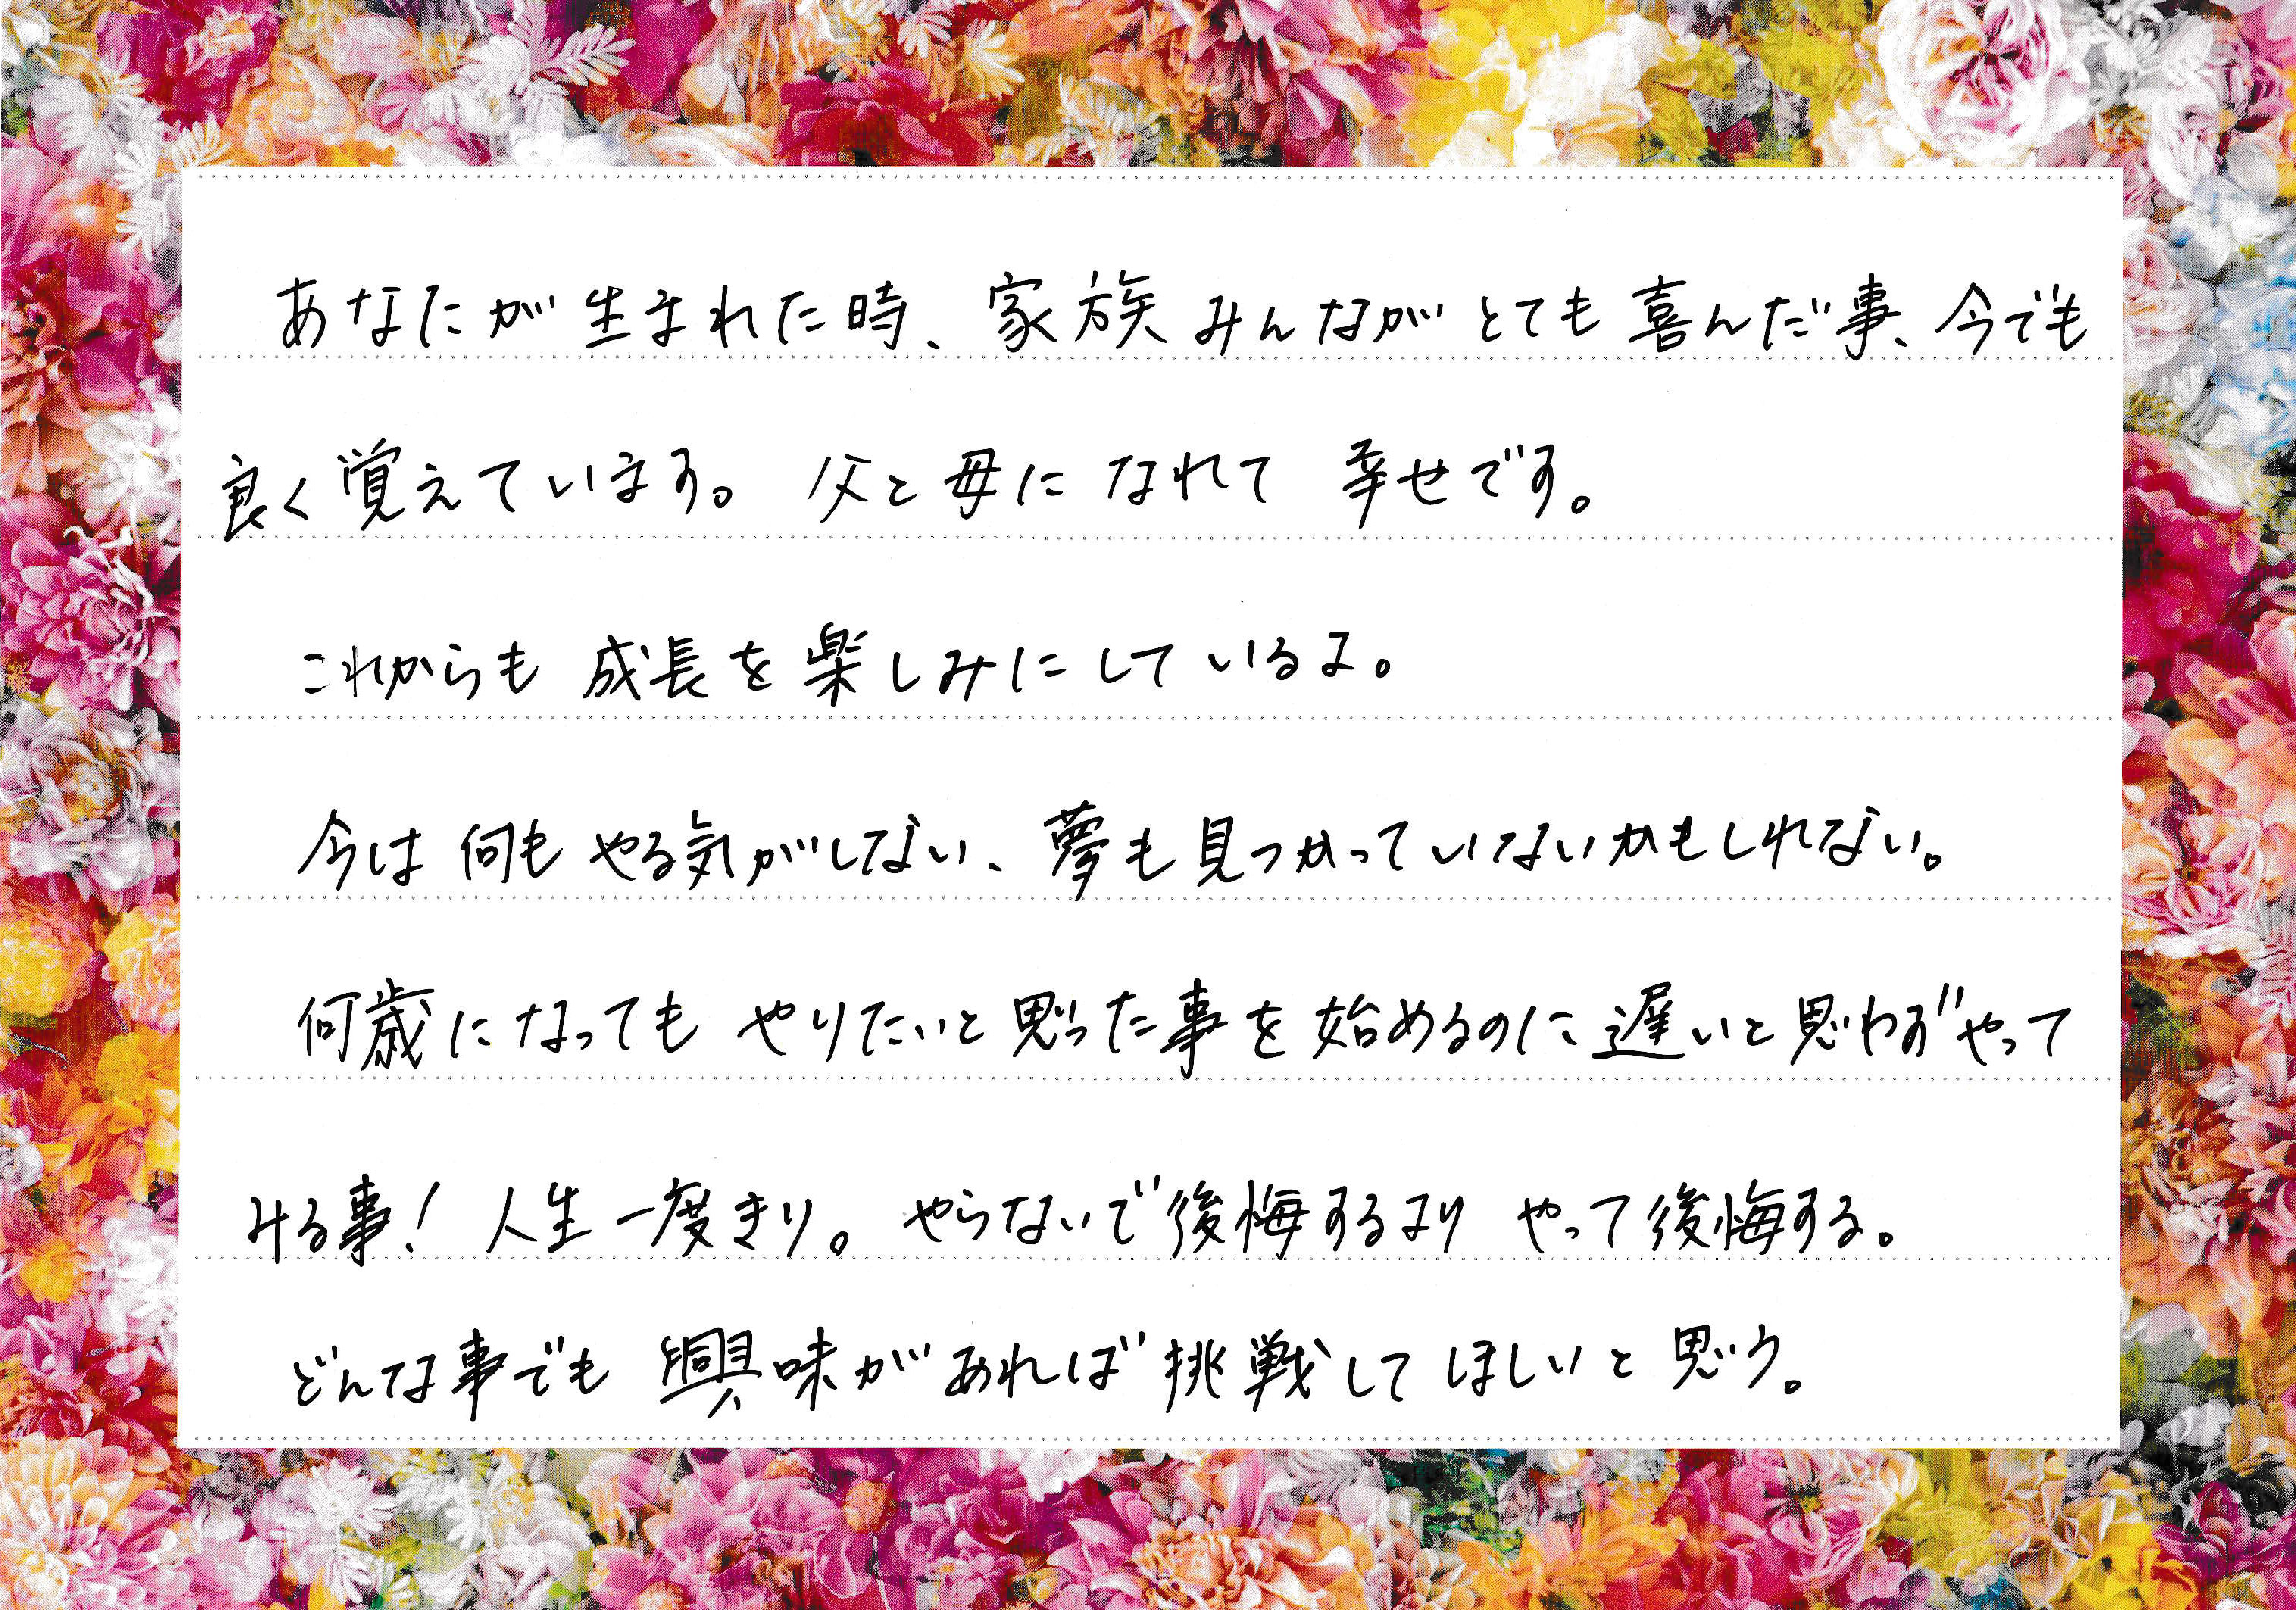 あなたが生まれた時、家族みんながとても喜んだ事、今でも
良く覚えています。父と母になれて幸せです。
これからも成長を楽しみにしているよ。
今は何もやる気がしない、夢も見つかっていないかもしれない。
何歳になってもやりたいと思った事を始めるのに遅いと思わずやって
みる事！人生一度きり。やらないで後悔するよりやって後悔する。
どんな事でも興味があれば挑戦してほしいと思う。